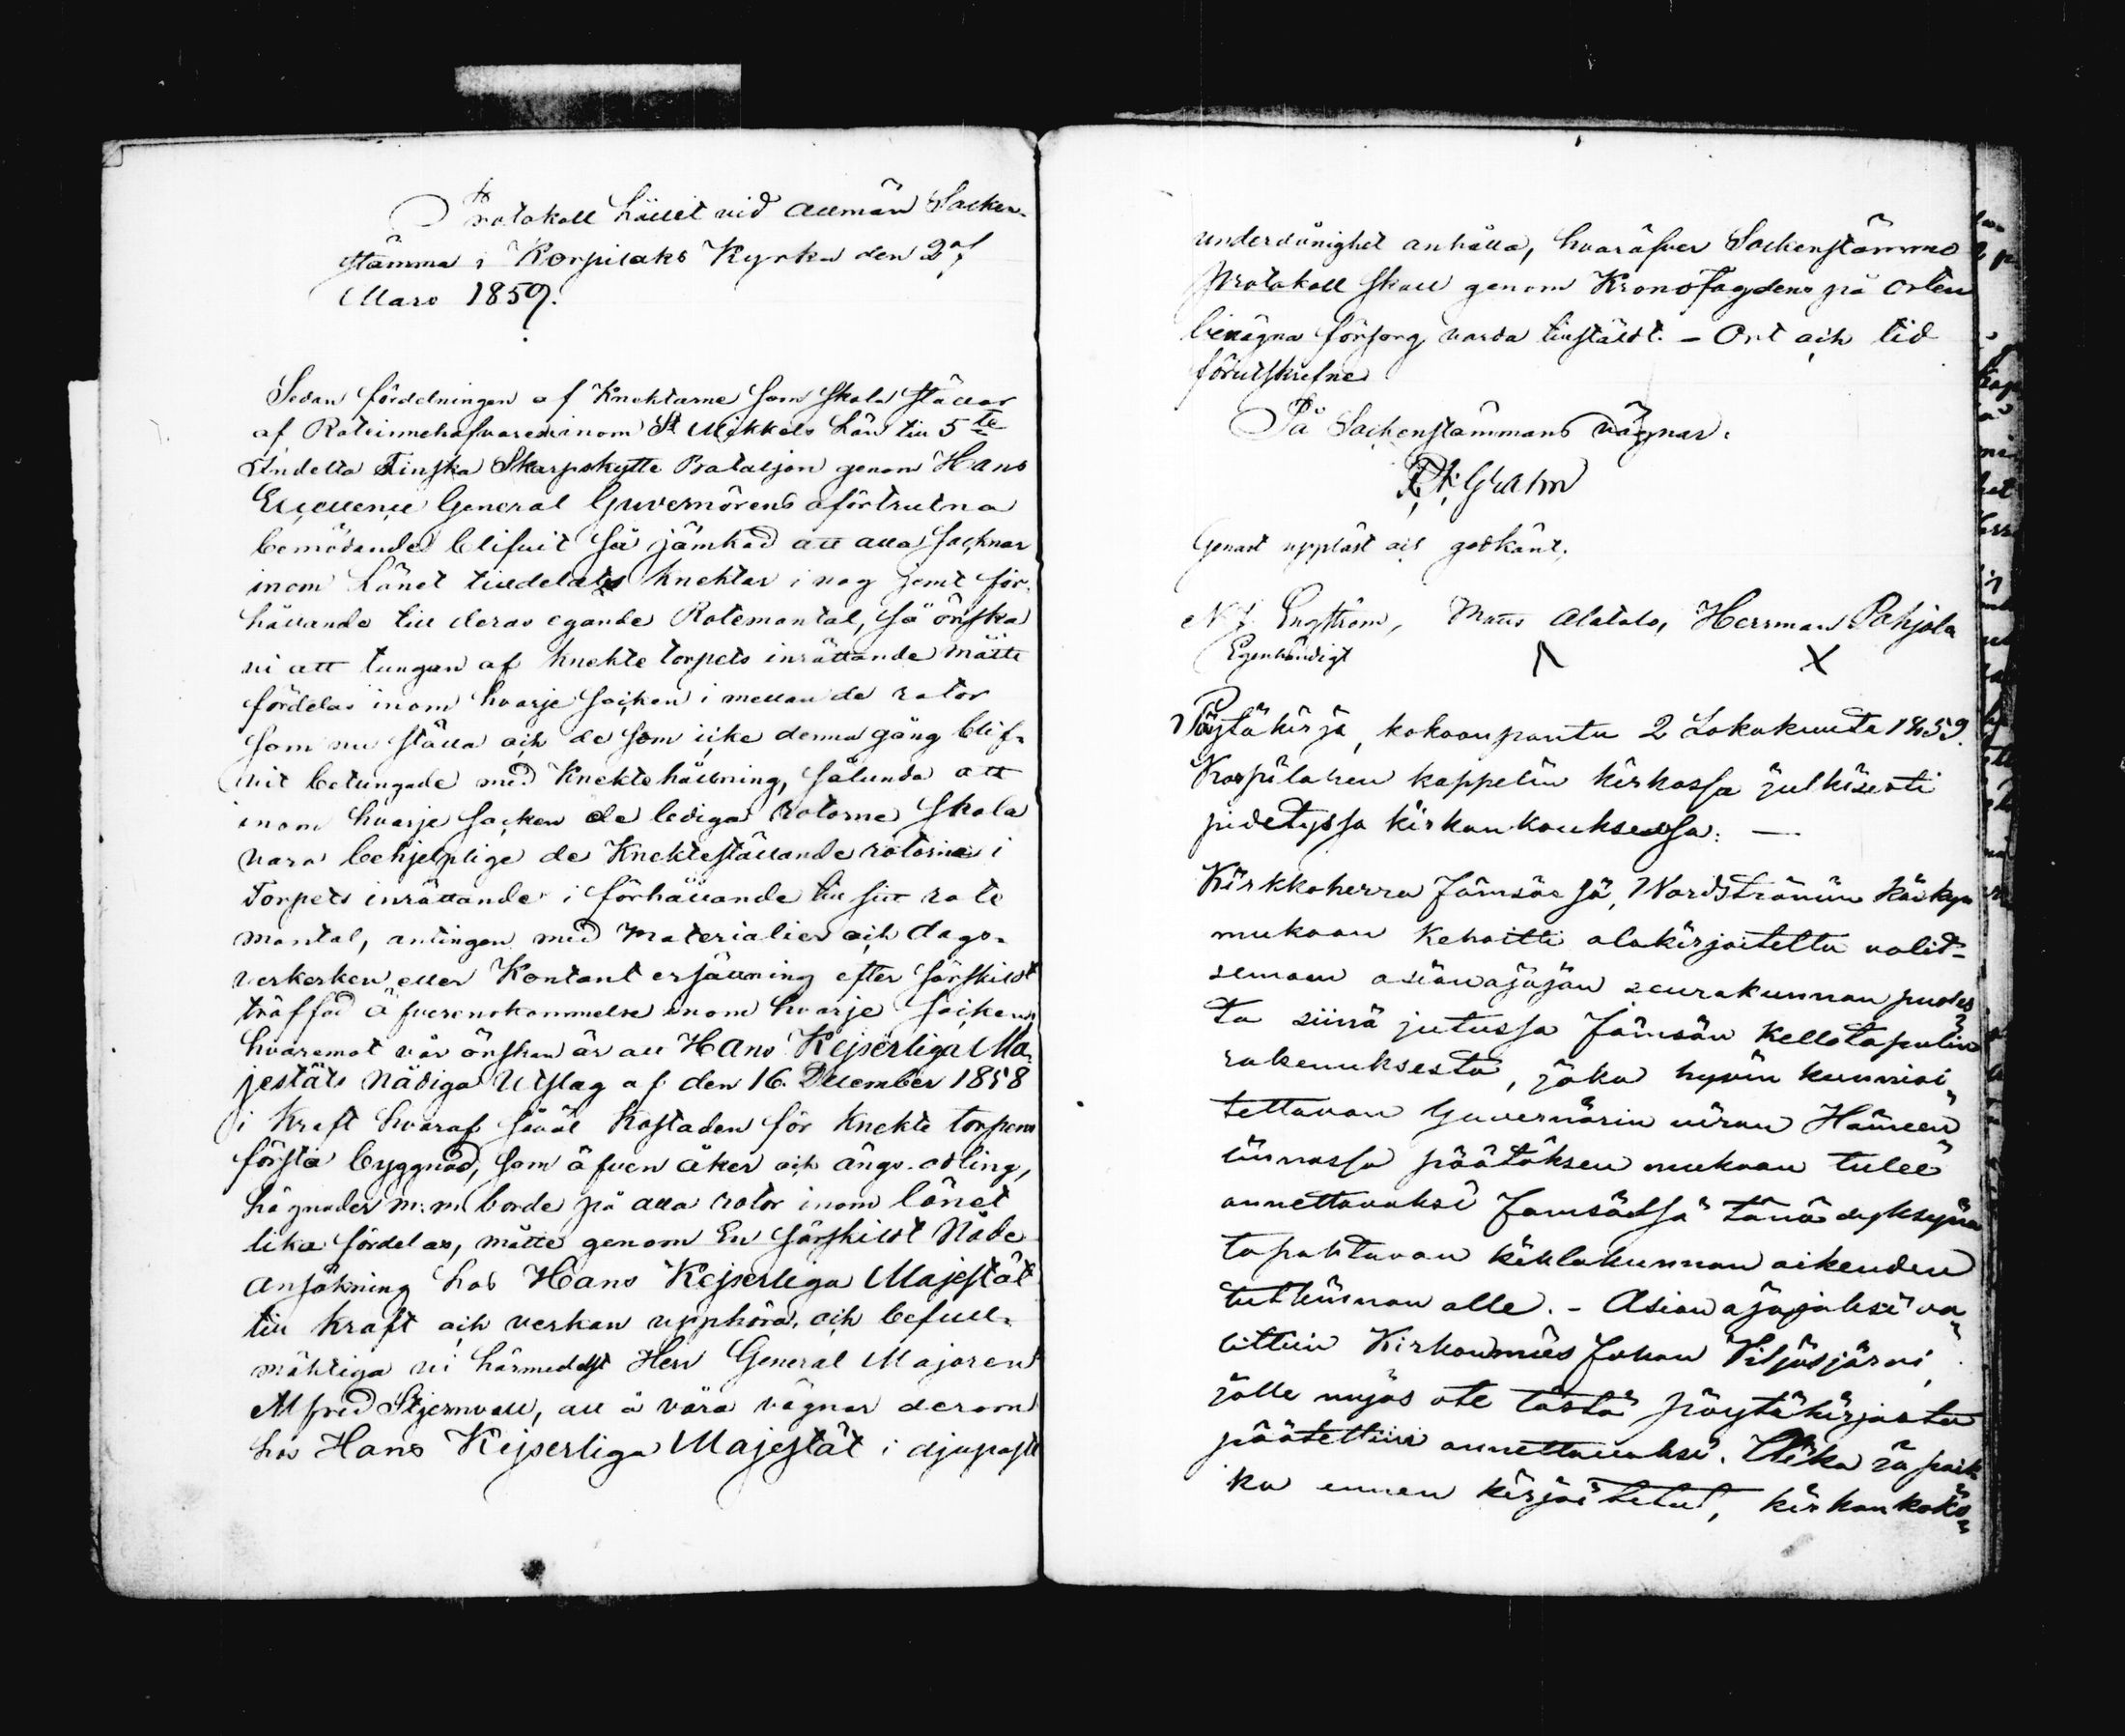 Protokoll hållit vid allmän Socken-
stämma i Korpilaks Kyrka den 27
Mars 1859.
Sedan fördelningen af Knektarne som skola ställas
af Roteinnehafvarena inom St Mikkels Län till 5te
Indelta Finska Skarpskytte Bataljon genom Hans
Excellence General Guvernörens oförtrutna
bemödande blifvit så jämkad att alla socknar
inom Länet tilldelats knektar i nog jemt för-
hållande till deras egande Rotemantal, så önska
vi att tungan af knekte torpets inrättande måtte
fördelas inom hvarje socken i mellan de rotor
som nu ställa och de som icke denna gång blif-
vit betungade med Knektehållning, sålunda att
inom hvarje socken de lediga rotorne skola
vara behjelplige de Knekteställande rotorne i
Torpets inrättande i förhållande till sitt rote
mantal, antingen med Materialier och dags-
verkerken eller Kontant ersättning efter särskildt
träffad öfverenskommelse inom hvarje socken
hvaremot vår önskan är att Hans Kejserliga Ma-
jestäts Nådiga Utslag af den 16 December 1858
i Kraft hvaraf såväl kostnaden för knekte torpens
första byggnad, som äfven åker och ängs-odling,
hägnader m:m borde på alla rotor inom länet
lika fördelas, måtte genom En särskildt Nåde
ansökning hos Hans Kejserliga Majestät
till kraft och verkan upphöra, och befull-
mäktiga vi härmedelst Herr General Majoren
Alfred Stjernvall, att å våra vägnar derom
hos Hans Kejserliga Majestät i djupaste
underdånighet anhålla, hvaröfver Sockenstämmo
Protokoll skall genom Kronofogdens på orten
benägna försorg varda tillstäldt. – Ort och tid
förutskrefne
På Sockenstämmans vägnar.
Grahn
Genast uppläst och godkänt,
N. J. Engström, Matts Alatalo, Herrman Pohjola
Egenhändigt
Pöytäkirja, kokoonpantu 2 Lokakuuta 1859.
Korpilahen kappelin kirkossa julkisesti
pidetyssä kirkonkouksessa: —
Kirkkoherra Jämsässä, Nordströmin käskyn
mukaan kehoitti alakirjoitettu valit-
semaan asianajajan seurakunnan puoles
ta siinä jutussa Jämsän Kellotapulin
rakennuksesta, joka hyvin kunnioi
tettavan Guvernörin viran Hämeen
linnassa päätöksen mukaan tulee
annettavaksi Jämsässä tänä syksynä
tapahtuvan kihlakunnan oikeuden
tutkinnon alle. – Asianajajaksi va
littiin Kirkonmies Johan Viljosjärvi,
jolle myös ote tästä pöytäkirjasta
päätettiin annettavaksi. Aika ja paik
ka ennen kirjoitetut, kirkon koko-